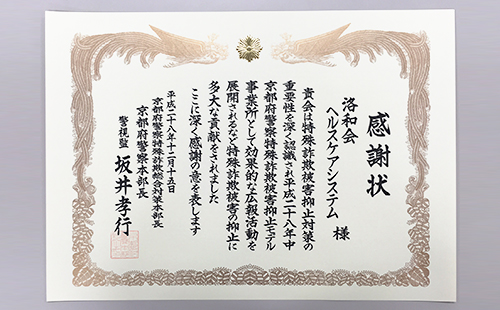 感謝状
洛和会
ヘルスケアシステム 様
貴会は特殊詐欺被害抑止対策の
重要性を深く認識され平成二十八年中
京都府警察特殊詐欺被害抑止モデル
事業所として効果的な広報活動を
展開されるなど特殊詐欺被害の抑止に
多大な貢献をされました
ここに深く感謝の意を表します
平成二十八年十二月十五日
京都府警察特殊詐欺総合対策本部長
京都府警察本部長
警視監 坂井孝行